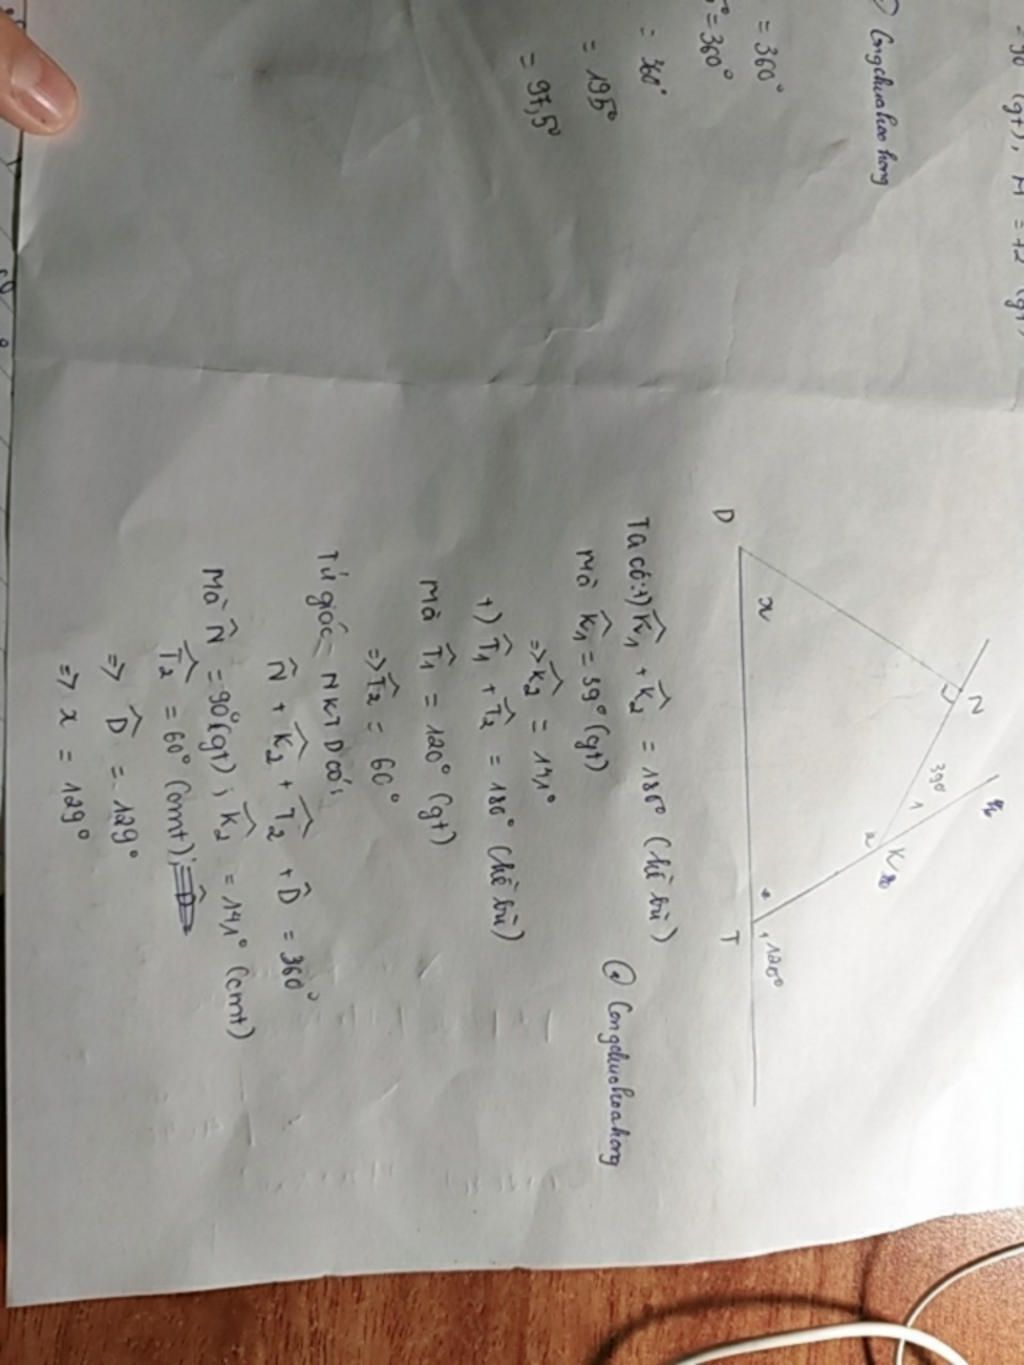 = 90° (gt), M = 72° (gt)
Congchuahoahong
= 360°
= 360°
= 360°
= 195°
= 97,5°
D
x
N
39°
1
2
K
T
1
120°
Ta có:+) K̂₁ + K̂₂ = 180° (kề bù)
Mà K̂₁ = 39° (gt)
=> K̂₂ = 141°
@ Congchuahoahong
+) T̂₁ + T̂₂ = 180° (kề bù)
Mà T̂₁ = 120° (gt)
=> T̂₂ = 60°
Tứ giác NKTD có:
N̂ + K̂₂ + T̂₂ + D̂ = 360°
Mà N̂ = 90°(gt) ; K̂₂ = 141° (cmt)
T̂₂ = 60° (cmt);
=> D̂ = 129°
=> x = 129°